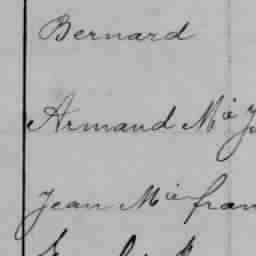 Bernard
Armand Mie J
Jean Mie fran